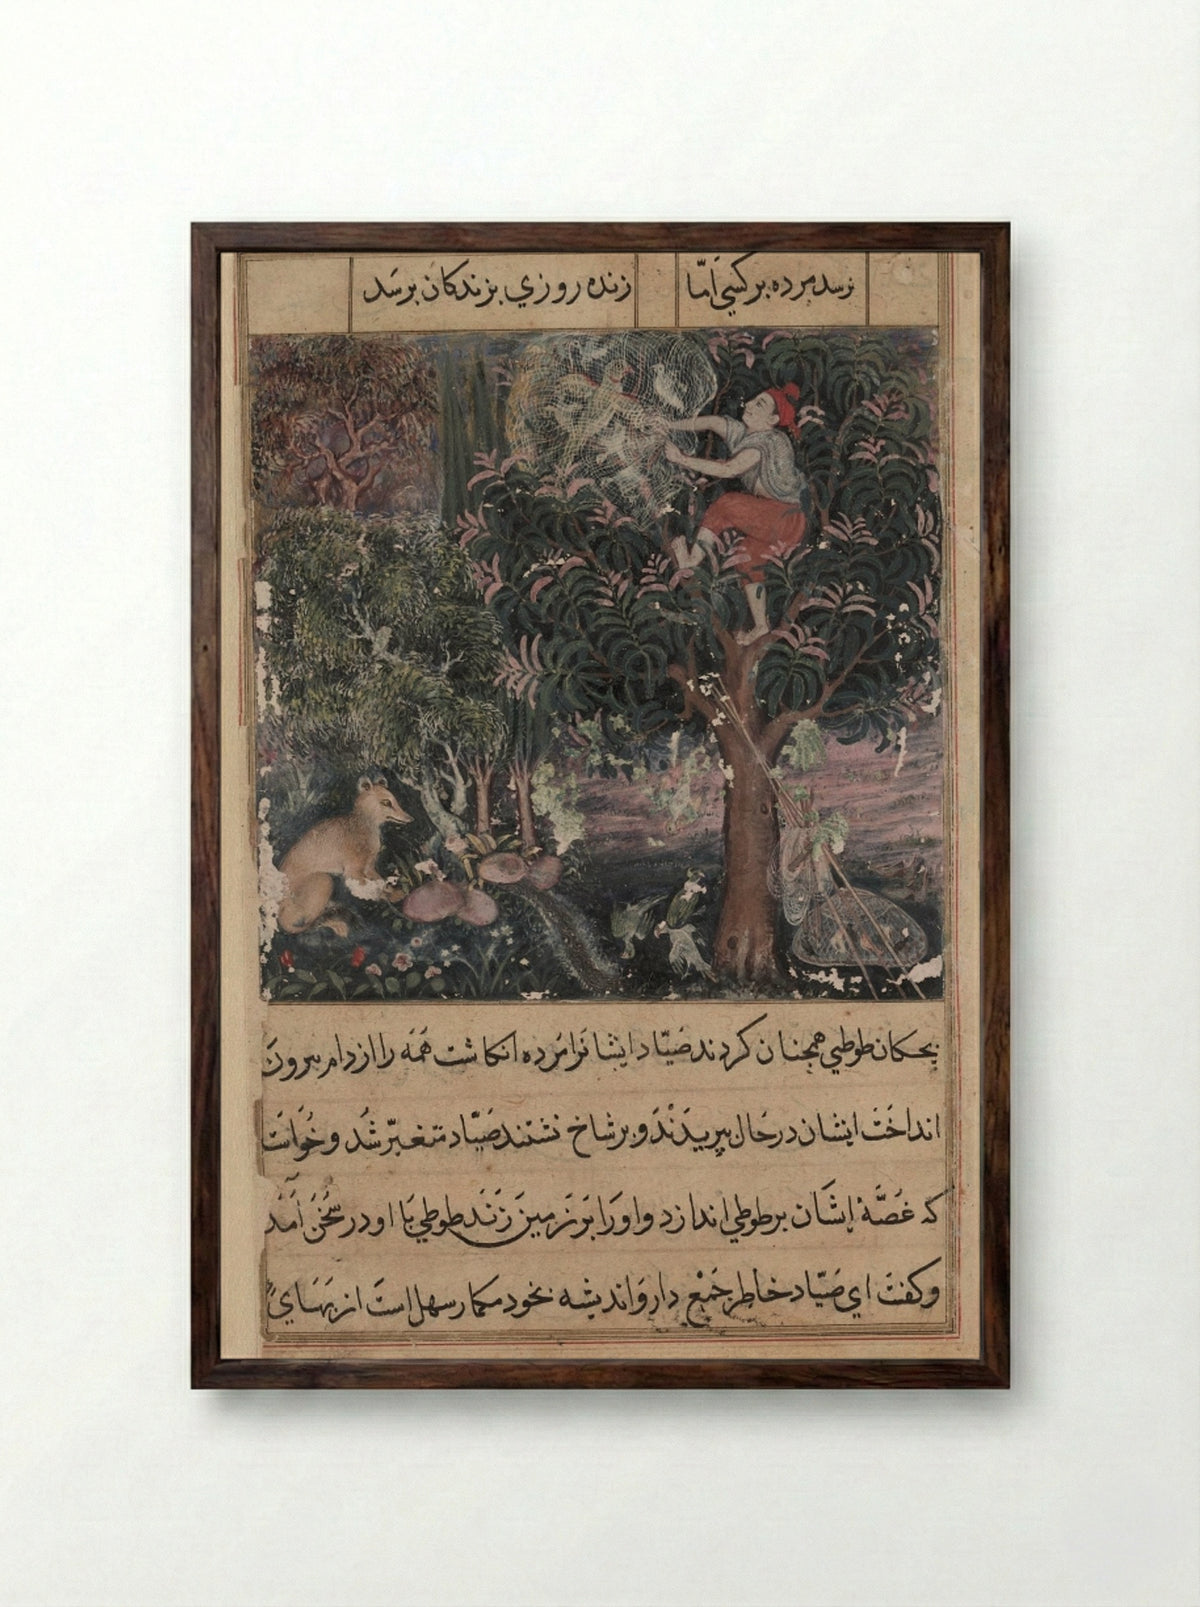 نرسد مرده بر کسي امّا زنده روزي بزندکان برسَد
بچکان طوطي همچنان کردند صَیّاد ایشانرا مرده انکاشت همَه را از دام بیرون
انداخت ایشان در حَال بپریدَنْدَ و بر شاخ نشتند صَیّاد متغیّر شُد و خُوَاست
که غصَّهٔ اِیشان بر طوطي اندازد و اورا بر زمین زَنَد طوطي بَا او در سخُن آمَد
و کفتَ اي صَیّاد خاطر جَمْع دار وَ اندیشه بخود مکمار سهل است از بَهَايِ